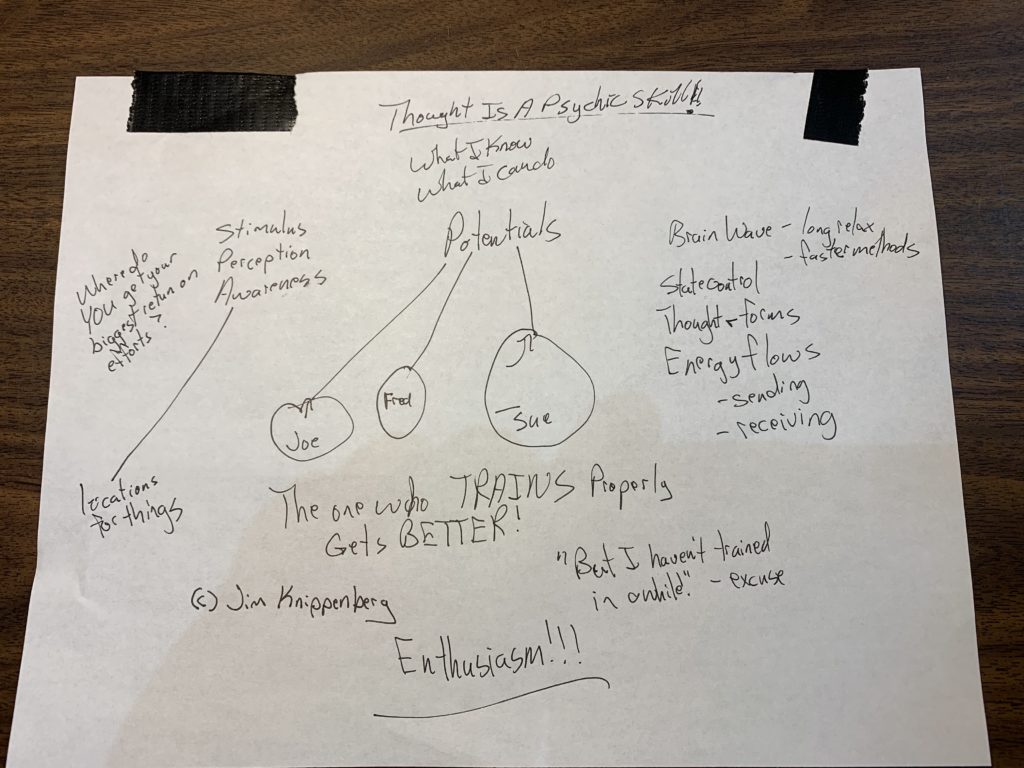 Thought Is A Psychic Skill!!
What I Know
What I can do
Potentials
Stimulus
Perception
Awareness
Where do
you get your
biggest return on
efforts?
locations
for things
Joe
Fred
Sue
Brain Wave - long relax
- faster methods
State control
Thought - forms
Energy flows
- sending
- receiving
The one who TRAINS Properly
Gets BETTER!
"But I haven't trained
in awhile". - excuse
(c) Jim Knippenberg
Enthusiasm!!!